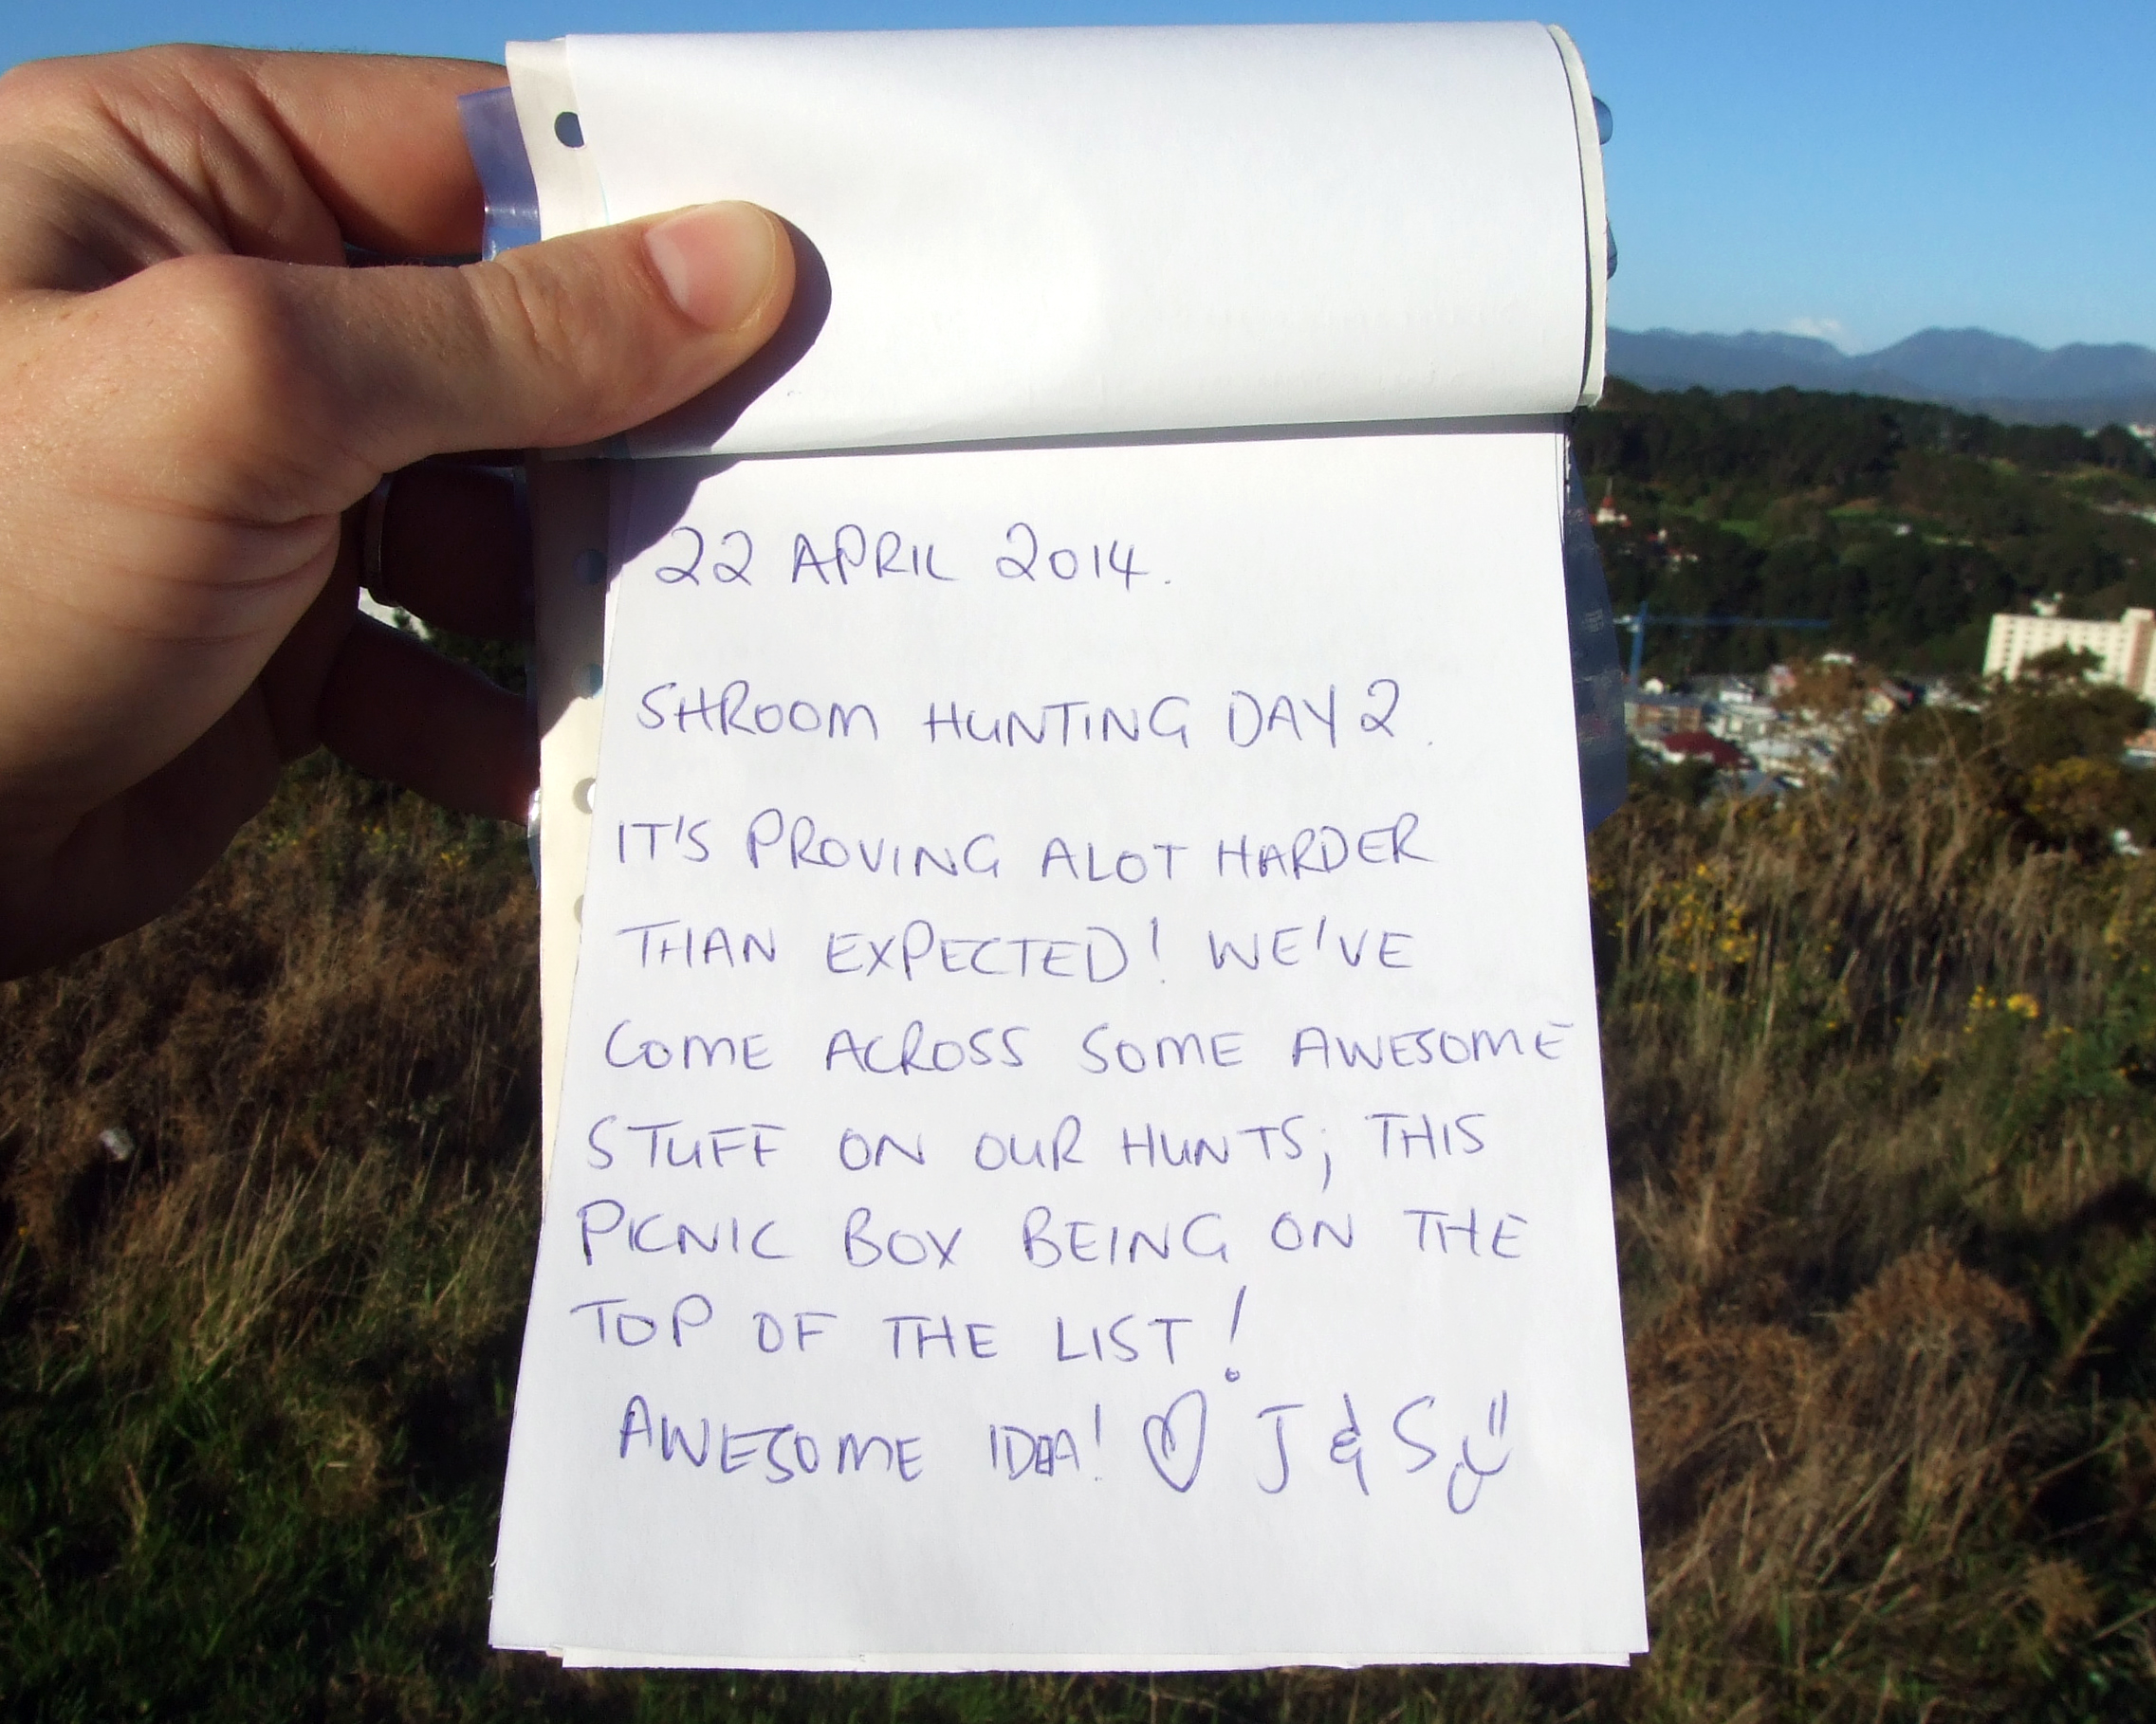 22 APRIL 2014.
SHROOM HUNTING DAY 2.
IT'S PROVING ALOT HARDER
THAN EXPECTED! WE'VE
COME ACROSS SOME AWESOME
STUFF ON OUR HUNTS; THIS
PICNIC BOX BEING ON THE
TOP OF THE LIST!
AWESOME IDEA! ♡ J & S